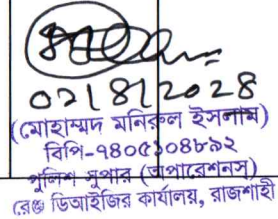 ০২।৪।২০২৪
(মোহাম্মদ মনিরুল ইসলাম)
বিপি-৭৪০৫১০৪৮৯২
পুলিশ সুপার (অপারেশনস)
রেঞ্জ ডিআইজির কার্যালয়, রাজশাহী